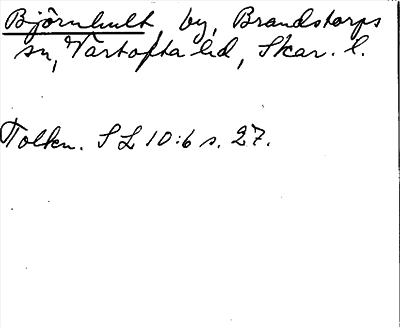 Björnhult, by, Brandstorps
sn, Vartofta hd, Skar. l.
Tolkn. SL 10:6 s. 27.